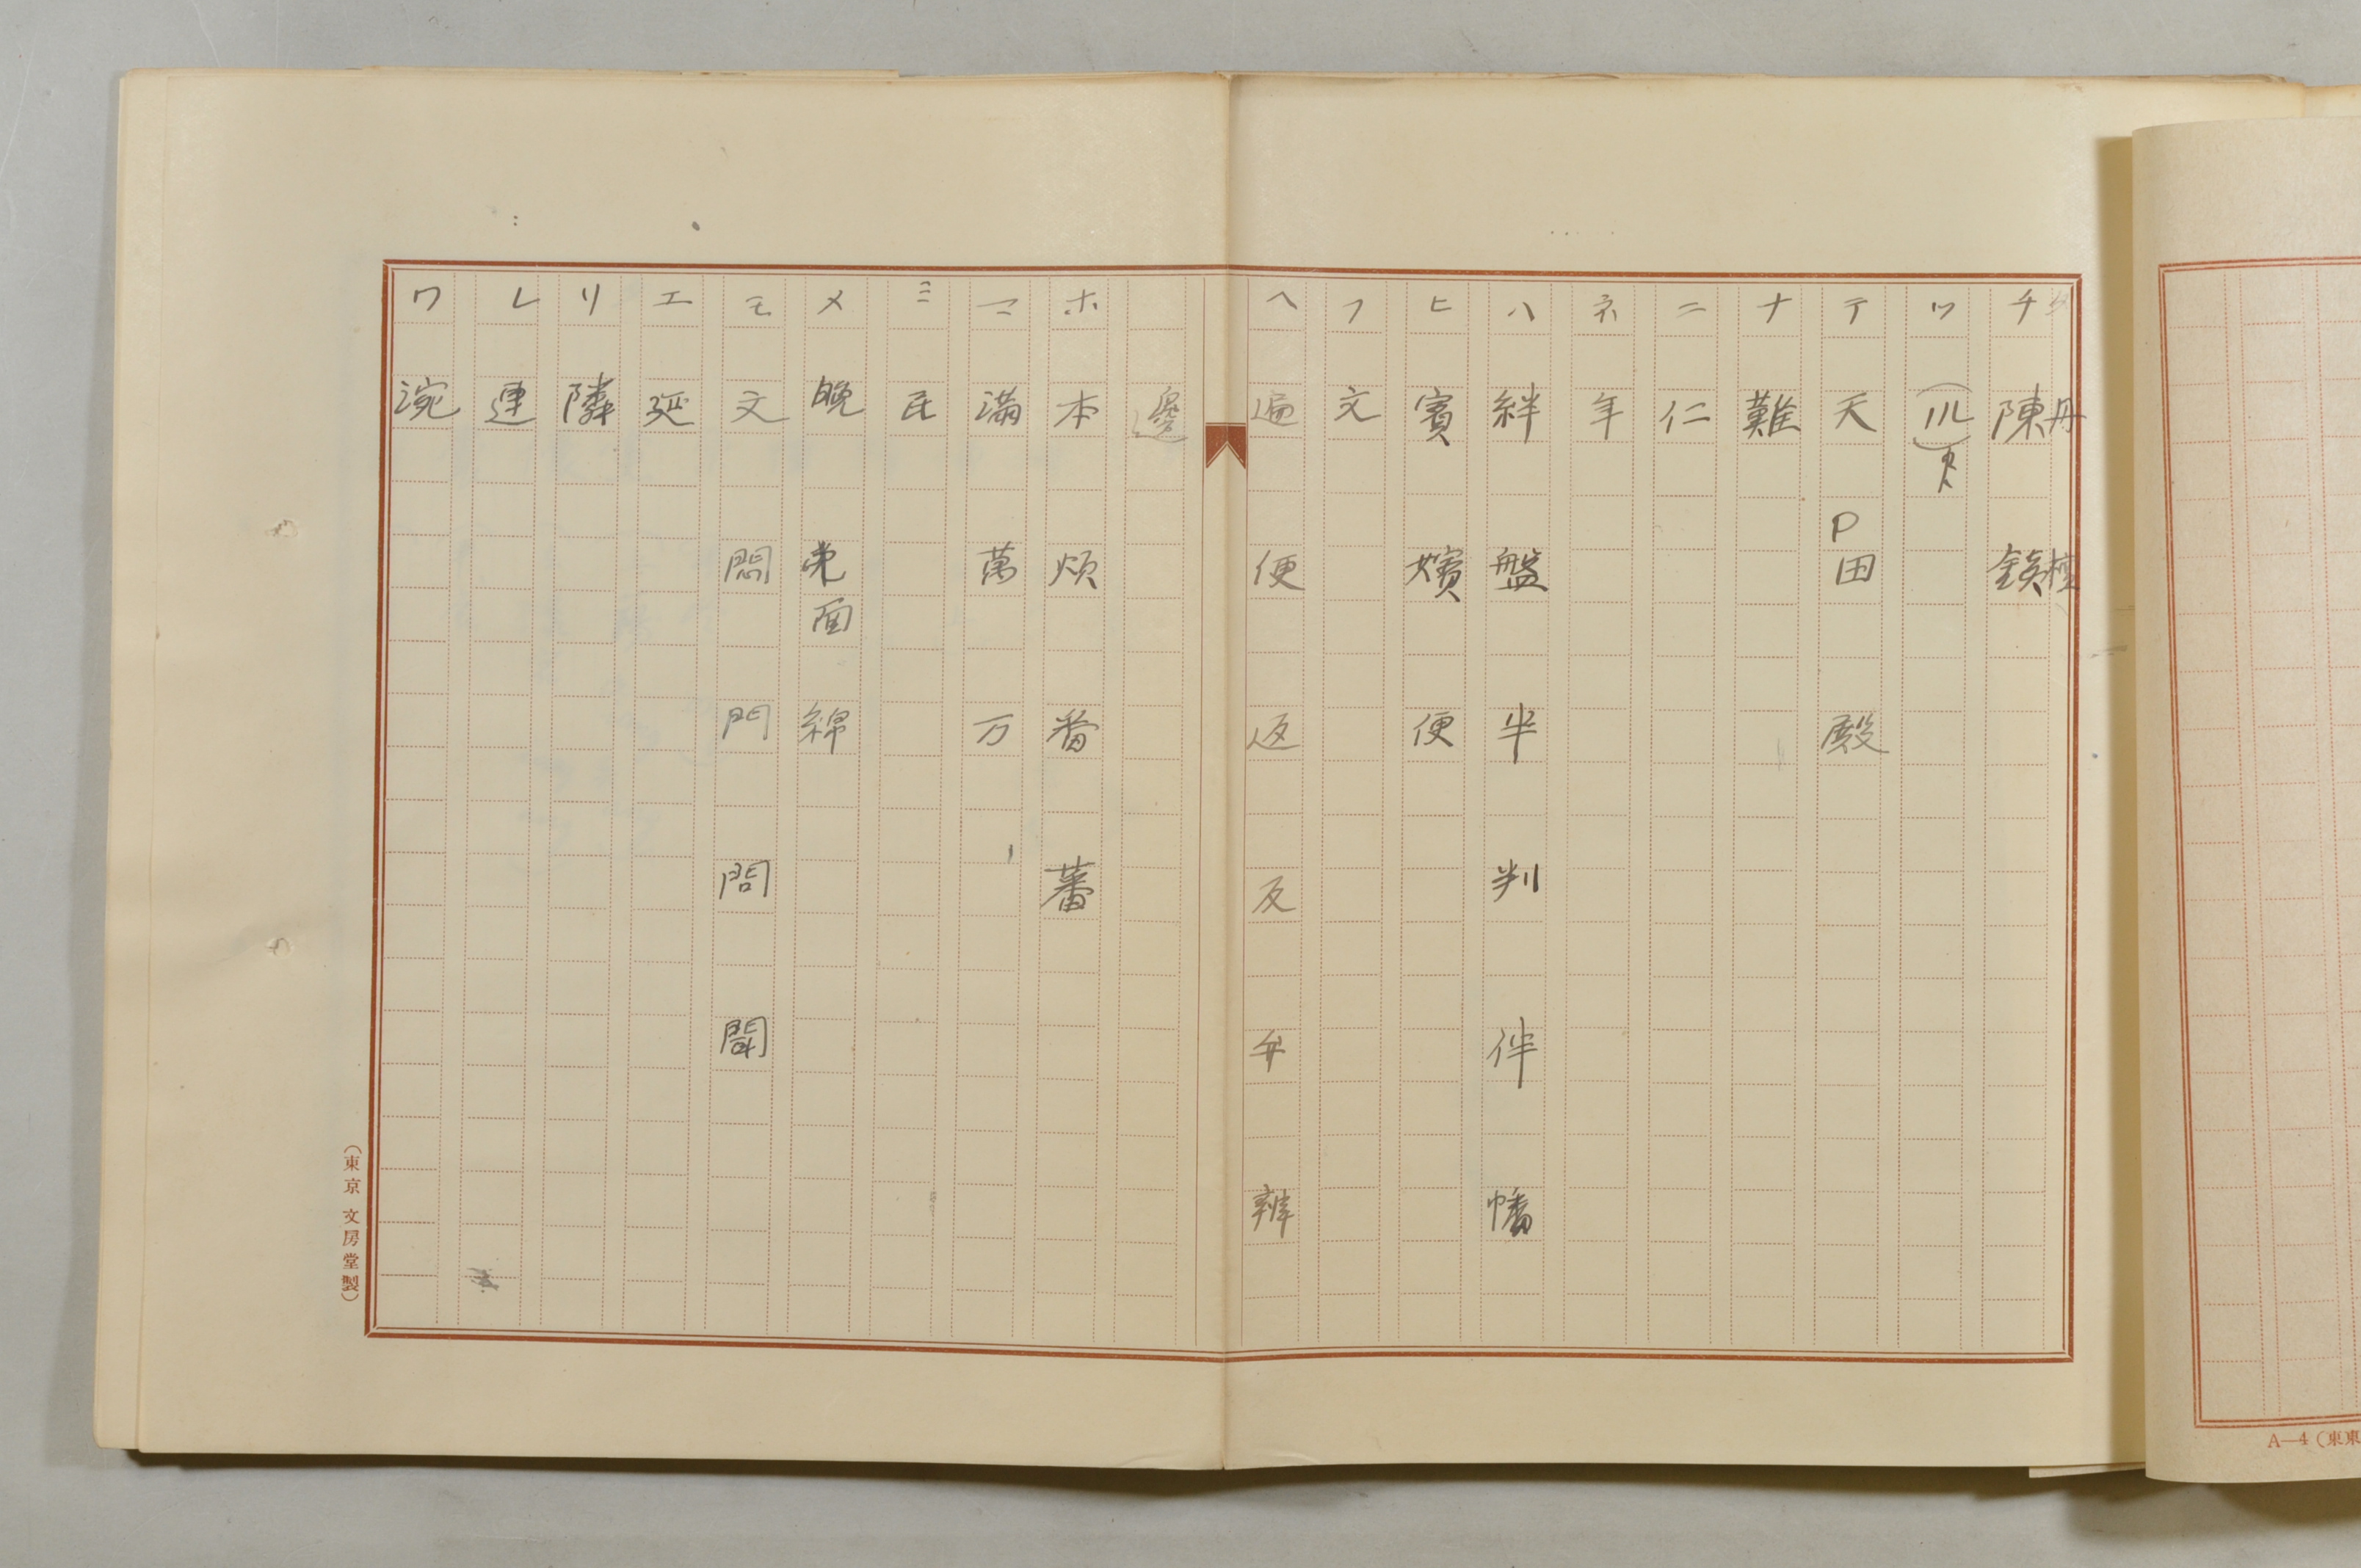 タ 丹 檀
チ 陳
ツ (川)
テ 天 P田 殿
ナ 難
ニ 仁
ネ 年
ハ 絆 盤 半 判 伴 幡
ヒ 賓 嬪 便
フ 文
ヘ 遍 便 返 反 弁 辨
邊
ホ 本 煩 番 蕃
マ 満 萬 万
ミ 民
メ 晩 面 綿
モ 文 悶 門 問 聞
エ 延
リ 隣
レ 連
ワ
(東京 文房堂製)
A—4 (東東